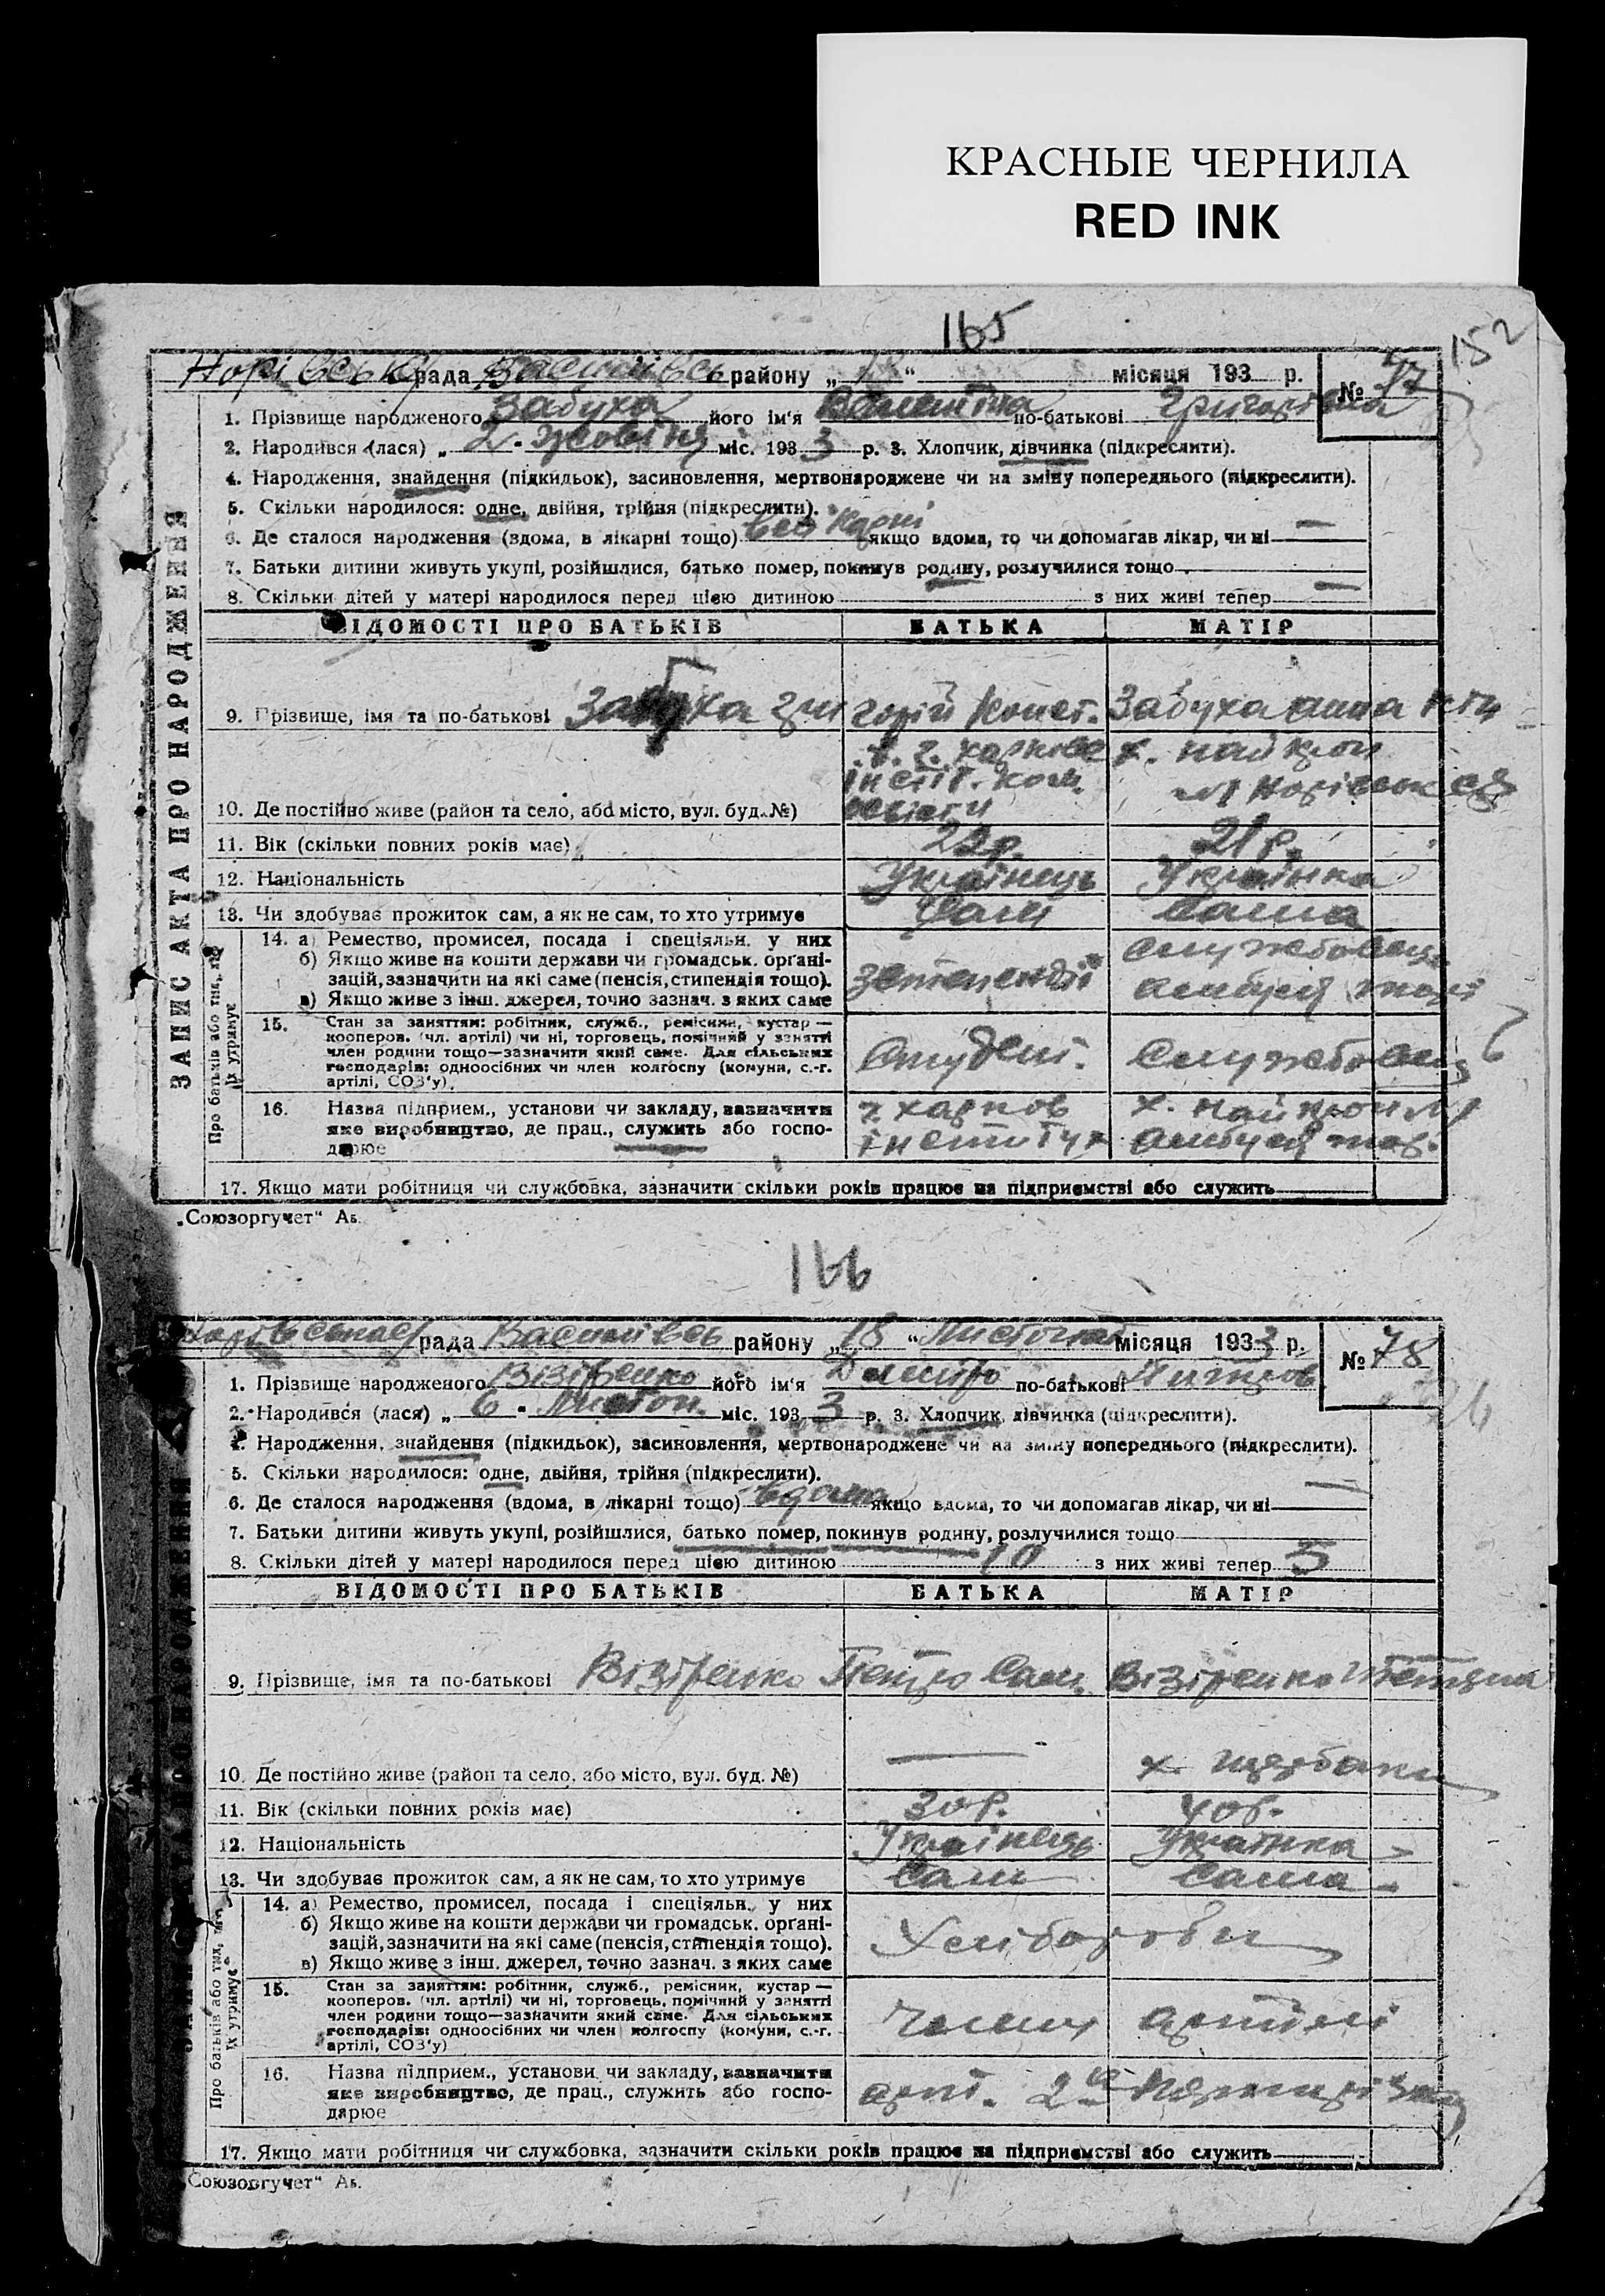 КРАСНЫЕ ЧЕРНИЛА
RED INK
165
152
рада району „18“ місяця 193 р.
№ 77
ЗАПИС АКТА ПРО НАРОДЖЕННЯ
1. Прізвище народженого Забуха його ім'я Валентіна по-батькові Григорівна
2. Народився (лася) „2“ жовтня міс. 1933 р. 3. Хлопчик, дівчинка (підкреслити).
4. Народження, знайдення (підкидьок), засиновлення, мертвонароджене чи на зміну попереднього (підкреслити).
5. Скільки народилося: одне, двійня, трійня (підкреслити).
6. Де сталося народження (вдома, в лікарні тощо) якщо вдома, то чи допомагав лікар, чи ні —
7. Батьки дитини живуть укупі, розійшлися, батько помер, покинув родину, розлучилися тощо
8. Скільки дітей у матері народилося перед цією дитиною з них живі тепер —
ВІДОМОСТІ ПРО БАТЬКІВ БАТЬКА МАТІР
9. Прізвище, імя та по-батькові Забуха Григорій Конст. Забуха анна
10. Де постійно живе (район та село, або місто, вул. буд. №)
11. Вік (скільки повних років має) 22р. 21р.
12. Національність Українець Українка
13. Чи здобуває прожиток сам, а як не сам, то хто утримує Сам Сама
Про батьків або тих, що їх утримує
14. а) Ремество, промисел, посада і спеціяльн. у них
б) Якщо живе на кошти держави чи громадськ. орґані-
зацій, зазначити на які саме (пенсія, стипендія тощо).
в) Якщо живе з інш. джерел, точно зазнач. з яких саме
15. Стан за заняттям: робітник, служб., ремісник, кустар —
кооперов. (чл. артілі) чи ні, торговець, помічний у занятті
член родини тощо—зазначити який саме. Для сільських
господарів: одноосібних чи член колгоспу (комуни, с.-г.
артілі, СОЗ'у).
Студент. Службовець
16. Назва підприєм., установи чи закладу, зазначити
яке виробництво, де прац., служить або госпо-
дарює
17. Якщо мати робітниця чи службовка, зазначити скільки років працює на підприємстві або служить
„Союзоргучет“ Аб.
166
рада району „18“ Листопад місяця 1933 р.
№ 78
1. Прізвище народженого Візіренко його ім'я Дмитро по-батькові
2. Народився (лася) „6“ Листоп. міс. 1933 р. 3. Хлопчик, дівчинка (підкреслити).
4. Народження, знайдення (підкидьок), засиновлення, мертвонароджене чи на зміну попереднього (підкреслити).
5. Скільки народилося: одне, двійня, трійня (підкреслити).
6. Де сталося народження (вдома, в лікарні тощо) вдома якщо вдома, то чи допомагав лікар, чи ні —
7. Батьки дитини живуть укупі, розійшлися, батько помер, покинув родину, розлучилися тощо
8. Скільки дітей у матері народилося перед цією дитиною 10 з них живі тепер 5
ВІДОМОСТІ ПРО БАТЬКІВ БАТЬКА МАТІР
9. Прізвище, імя та по-батькові Візіренко Петро Сам. Візіренко Тетяна
10. Де постійно живе (район та село, або місто, вул. буд. №) — х. Щербаки
11. Вік (скільки повних років має) 30р. 40р.
12. Національність Українець Українка
13. Чи здобуває прожиток сам, а як не сам, то хто утримує Сам Сама
Про батьків або тих, що їх утримує
14. а) Ремество, промисел, посада і спеціяльн. у них
б) Якщо живе на кошти держави чи громадськ. орґані-
зацій, зазначити на які саме (пенсія, стипендія тощо).
в) Якщо живе з інш. джерел, точно зазнач. з яких саме
Хлібороби
15. Стан за заняттям: робітник, служб., ремісник, кустар —
кооперов. (чл. артілі) чи ні, торговець, помічний у занятті
член родини тощо—зазначити який саме. Для сільських
господарів: одноосібних чи член колгоспу (комуни, с.-г.
артілі, СОЗ'у)
Члени артілі
16. Назва підприєм., установи чи закладу, зазначити
яке виробництво, де прац., служить або госпо-
дарює
арт.
17. Якщо мати робітниця чи службовка, зазначити скільки років працює на підприємстві або служить
Союзоргучет“ Аб.